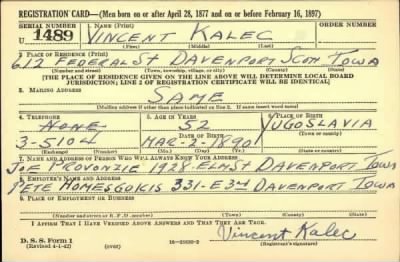 REGISTRATION CARD—(Men born on or after April 28, 1877 and on or before February 16, 1897)
SERIAL NUMBER 1. NAME (Print) ORDER NUMBER
U 1489 VINCENT KALEC
(First) (Middle) (Last)
2. PLACE OF RESIDENCE (Print)
612 FEDERAL ST DAVENPORT SCOTT IOWA
(Number and street) (Town, township, village, or city) (County) (State)
[THE PLACE OF RESIDENCE GIVEN ON THE LINE ABOVE WILL DETERMINE LOCAL BOARD
JURISDICTION; LINE 2 OF REGISTRATION CERTIFICATE WILL BE IDENTICAL]
3. MAILING ADDRESS
SAME
[Mailing address if other than place indicated on line 2. If same insert word same]
4. TELEPHONE 5. AGE IN YEARS 6. PLACE OF BIRTH
52 YUGOSLAVIA
DATE OF BIRTH (Town or county)
3-5104 MAR-2-1890
(Exchange) (Number) (Mo.) (Day) (Yr.) (State or country)
7. NAME AND ADDRESS OF PERSON WHO WILL ALWAYS KNOW YOUR ADDRESS
JOE PROVONZIE 1928-ELM ST DAVENPORT IOWA
8. EMPLOYER'S NAME AND ADDRESS
PETE 331-E 3rd DAVENPORT IOWA
9. PLACE OF EMPLOYMENT OR BUSINESS
(Number and street or R. F. D. number) (Town) (County) (State)
I AFFIRM THAT I HAVE VERIFIED ABOVE ANSWERS AND THAT THEY ARE TRUE.
D. S. S. Form 1 Vincent Kalec
(Revised 4-1-42) (over) (Registrant's signature)